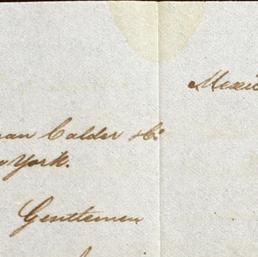 Mexic
man Calder & Co
w York.
Gentlemen